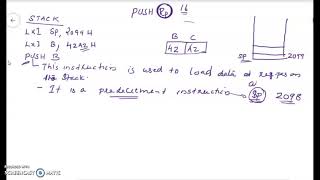 PUSH Rp 16
STACK
LXI SP, 2099 H
LXI B, 42A2 H
PUSH B
B C
42 A2
SP 2099
This instruction is used to load data of regpair
on stack.
- It is a predecrement instruction SP 2098
RECORDED WITH
SCREENCAST MATIC